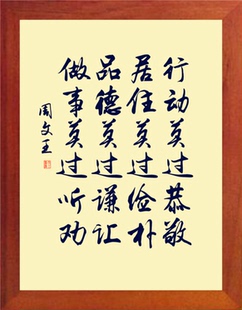 行动莫过恭敬
居住莫过俭朴
品德莫过谦让
做事莫过听劝
周文王